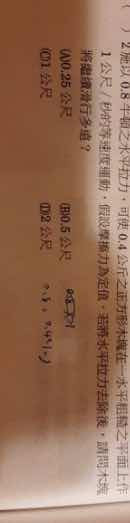 (　) 2.施以 0.8 牛頓之水平拉力，可使 0.4 公斤之正方形木塊在一水平粗糙之平面上作
1 公尺／秒的等速度運動，假設摩擦力為定值，若將水平拉力去除後，請問木塊
將繼續滑行多遠？
(A)0.25 公尺　(B)0.5 公尺
(C)1 公尺　(D)2 公尺